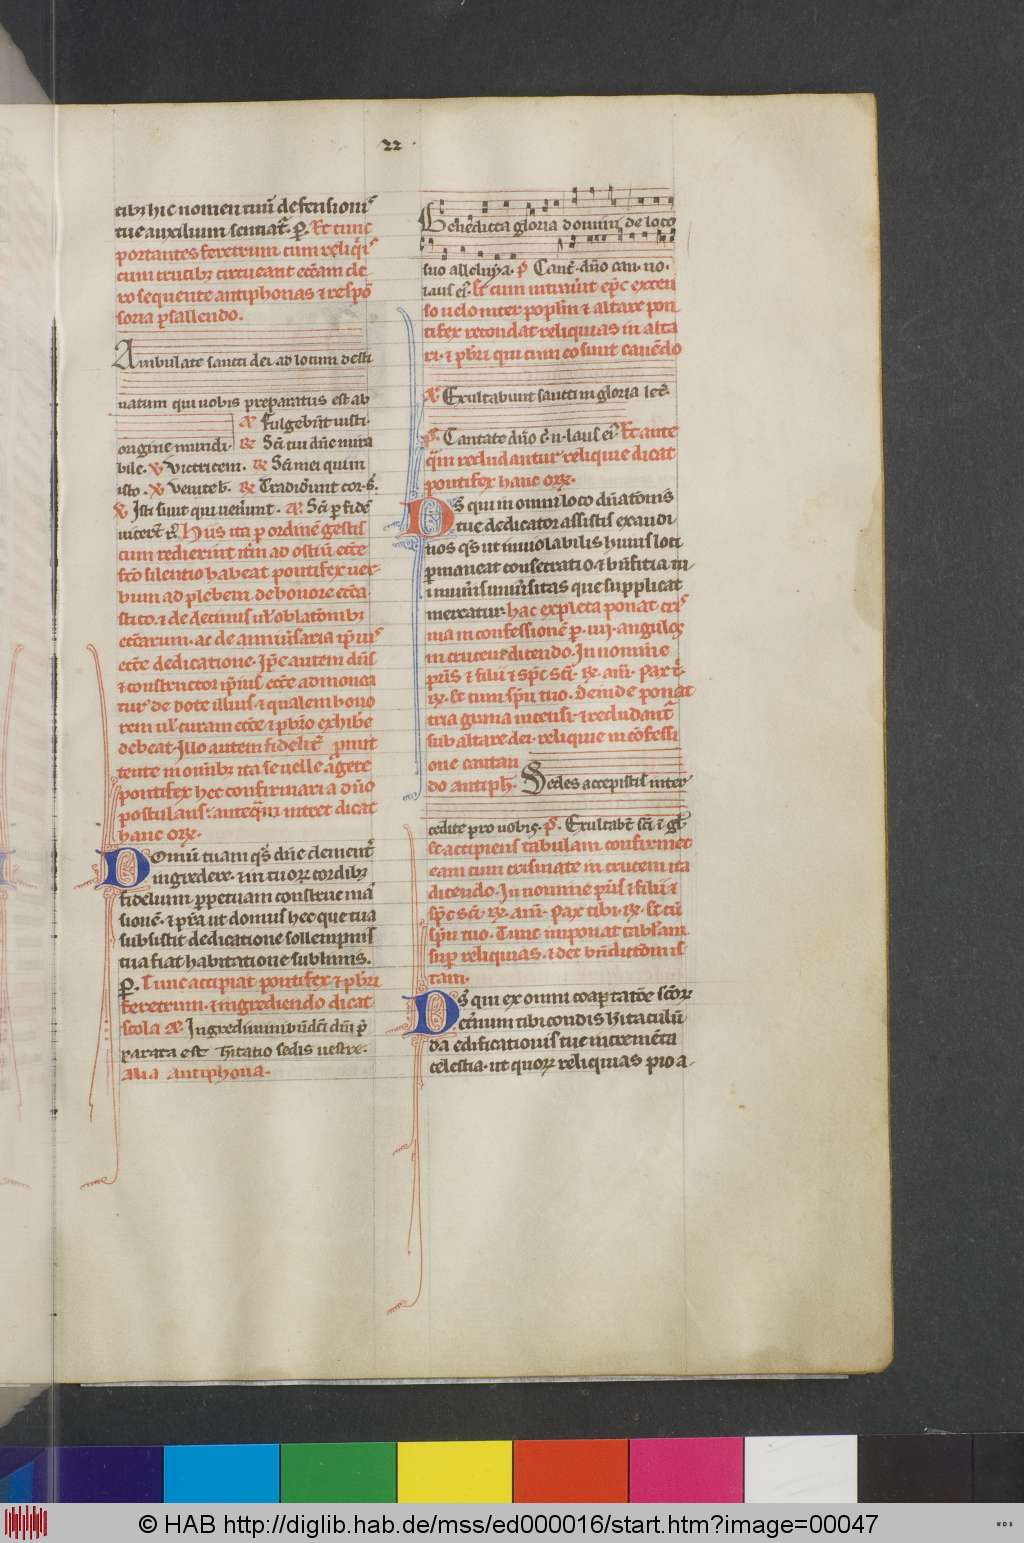 22
tibꝫ hic nomen tuū defensionis
tue auxilium sentiat. P. Et tunc
portantes feretrum cum reliqiis
cum crucibꝫ circueant ecc̄am de
ro sequente antiphonas ⁊ respō
soria psallendo.
Ambulate sancti dei ad locum desti
natum qui uobis preparatus est ab
origine mundi.
Fulgebūt iusti.
℟ Sc̄i tui dn̄e mira
bile. ℣ Victricem. ℟ Sc̄i mei qui in
isto. ℣ Venite b. ℟ Tradiderunt cor. s.
℣ Isti sunt qui uenerunt. A Sc̄i p fidē
uicert̄ r̄. Hiis ita p ordinē gestis
cum redierint itm̄ ad ostiū ecc̄e
fc̄o silentio habeat pontifex uer-
bum ad plebem de honore ecc̄ia
stico. ⁊ de decimis ul' oblatōnibꝫ
ecc̄arum. ac de anniūsaria ip̄ius
ecc̄e dedicatione. Ip̄e autem dn̄s
⁊ constructor ip̄ius ecc̄e admonea
tur de dote illius. ⁊ qualem hono
rem ul' curam ecc̄e ⁊ pb̄ro exhibē
debeat. Illo autem fidelit̄ promit
tente in om̄ibꝫ ita se uelle agere
pontifex hec confirmari a dn̄o
postulans. anteqm̄ intret dicat
hanc orō.
Domū tuam qs̄ dn̄e clement̄
ingredere. ⁊ in tuorꝝ cordibꝫ
fidelium ppetuam construe mā
sionē. ⁊ pr̄a ut domus hec que tua
subsistit dedicatione sollempnis
tua fiat habitatione sublimis.
P. Tunc accipiat pontifex ⁊ pb̄ri
feretrum. ⁊ ingrediendo dicat
scola A Ingredimini bn̄dc̄i dn̄i p̄
parata est hitatio sedis uestre.
alia antiphona.
Benedicta gloria domini de loco
suo alleluya. P Cant̄. dn̄o can. no.
laus ei'. Et cum intrauīt ep̄c exten
so uelo inter popl̄m ⁊ altare pon
tifex recondat reliquias in alta
ri. ⁊ pb̄ri qui cum eo sunt canēdo
A Exultabunt sancti in gloria let̄.
P. Cantate dn̄o c̄ n. laus ei'. Et ante
qm̄ recludantur reliquie dicat
pontifex hanc orō.
Ds̄ qui in omni loco dn̄atōnis
tue dedicator assistis exaudi
nos qs̄ ut inuiolabilis huius loci
pmaneat consecratio. ⁊ bn̄ficia tui
muneris uniūsitas que supplicat
mereatur. hac expleta ponat cris
ma in confessionē p. iiij. angulos
in cruce dicendo. In nomine
pr̄is ⁊ filii ⁊ sp̄c sc̄i. ℟. am̄. Pax t'.
℟. Et cum sp̄u tuo. Deinde ponat
tria grana incensi. ⁊ recludant̄
sub altare dei. reliquie in cōfessi
one cantan
do antiph̄. Sedes accepistis inter
cedite pro nobis. P. Exultabt̄ sc̄i i gl'
Et accipiens tabulam confirmet
eam cum crismate in crucem ita
dicendo. In nomine pr̄is ⁊ filii ⁊
sp̄c sc̄i. ℟. am̄. Pax tibi. ℟. Et cū
sp̄u tuo. Tunc inponat tablam
sup reliquias. ⁊ det bn̄dictōem is
tam.
Ds̄ qui ex omni coaptatōe sc̄orꝝ
et̄num tibi condis hitaculū
da edificationis tue incremēta
celestia. ut quorꝝ reliquias pio a-
© HAB http://diglib.hab.de/mss/ed000016/start.htm?image=00047